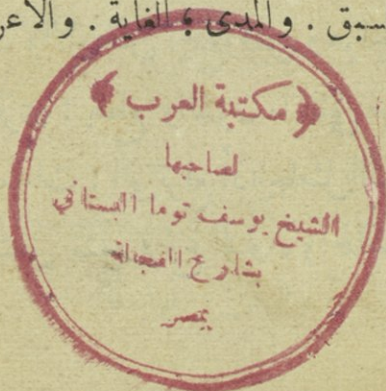 سبق . والمدى ، الغاية . والاعر
﴿ مكتبة العرب ﴾
لصاحبها
الشيخ يوسف توما البستاني
بشارع الفجالة
بمصر